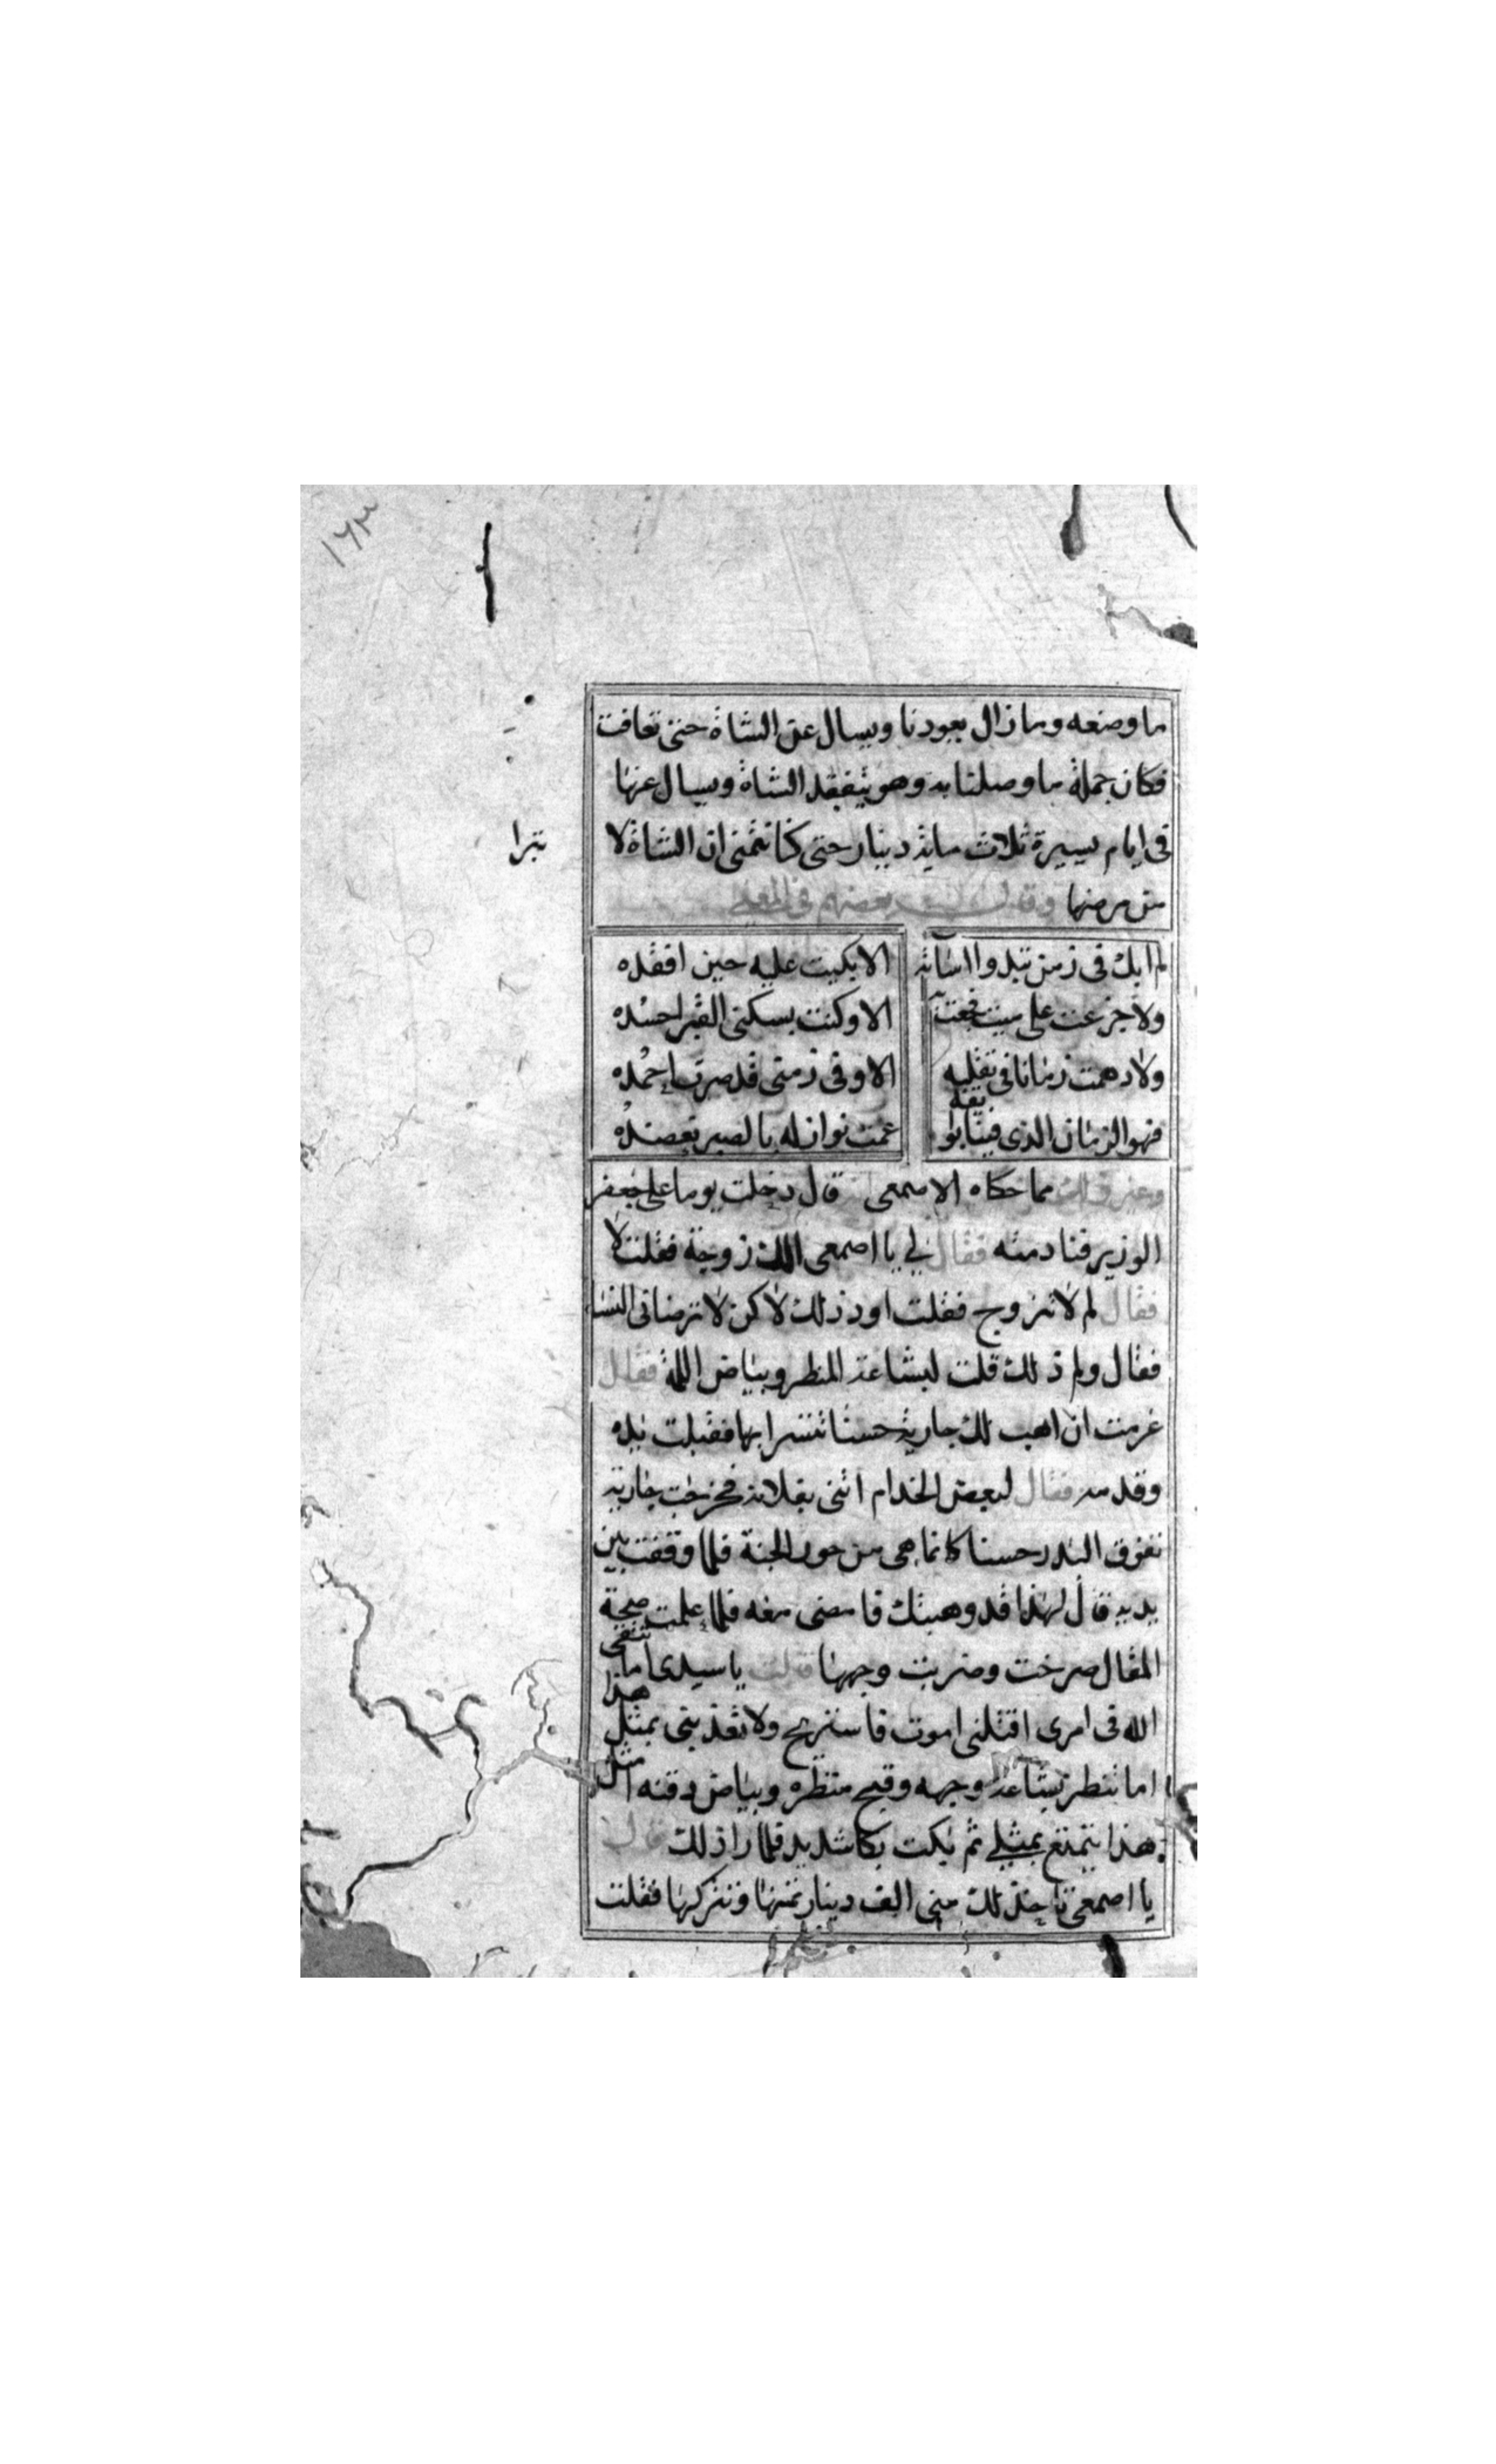 ١٦٣
ما وضعه وما زال يعودنا ويسال عن الشاة حتى تعافت
فكان جملة ما وصلنا به وهو يتفقد الشاة ويسال عنها
فى ايام يسيرة ثلاث ماية دينار حتى كنا نتمنى ان الشاة لا
تبرا
من مرضها وقال بعضهم فى المعنى
لم ابك فى زمن تبدوا اسآته الا بكيت عليه حين افقده
ولا جزعت على ميت فجعت به الا وكنت بسكنى القبر احسده
ولا دهمت زمانا فى تقلبه الا وفى زمنى قد صرت احمده
فهو الزمان الذى فينا بوايقه عمت نوازله بالصبر تعضده
وغير ذلك مما حكاه الاصمعى قال دخلت يوما على جعفر
الوزير فنادمته فقال لي يا اصمعى الك زوجة فقلت لا
فقال لم لا تتزوج فقلت اود ذلك لاكن لا ترضانى النسا
فقال ولم ذلك قلت لبشاعة المنظر وبياض اللمة فقال
عزمت ان اهب لك جارية حسنا تتسرا بها فقبلت يده
وقدمه فقال لبعض الخدام ائتنى بفلانه فخرجت جارية
تفوق البدر حسنا كانما هى من حور الجنة فلما وقفت بين
يديه قال لها قد وهبتك فامضى معه فلما علمت صحة
المقال صرخت وضربت وجهها قالت يا سيدى اما تتقى
الله فى امرى اقتلنى اموت فاستريح ولا تعذبنى بمثل هذا
اما تنظر بشاعة وجهه وقبح منظره وبياض دقنه امثل
هذا يتمتع بمثلي ثم بكت بكا شديد فلما را ذلك قال
يا اصمعى تاخذ لك منى الف دينار ثمنها وتتركها فقلت